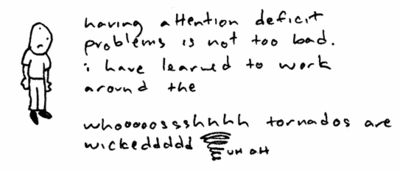 having attention deficit
problems is not too bad.
i have learned to work
around the
whooooossshhhh tornados are
wickeddddd UH OH